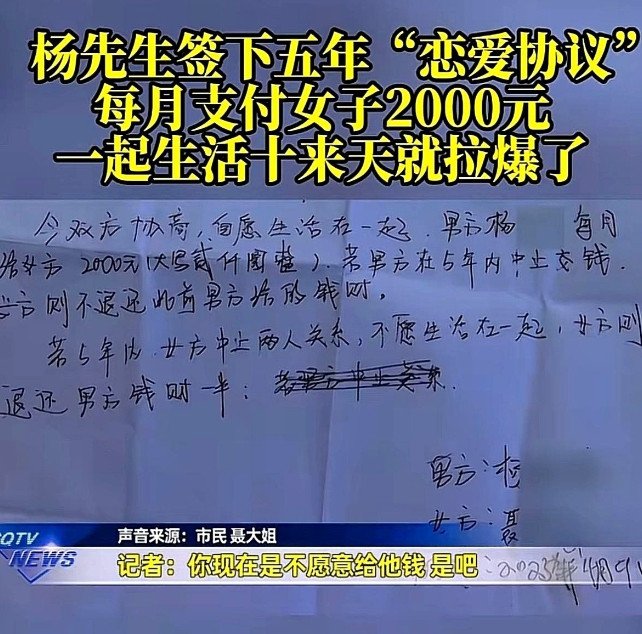 杨先生签下五年“恋爱协议”
每月支付女子2000元
一起生活十来天就拉爆了
今双方协商，自愿生活在一起．男方杨 每月
给女方2000元(大写贰仟圆整)．若男方在5年内中止交钱．
女方则不退还此前男方给的钱财．
若5年内．女方中止两人关系，不愿生活在一起，女方则
退还男方钱财一半：
男方：杨
女方：聂
CQTV
NEWS
声音来源：市民 聂大姐
记者：你现在是不愿意给他钱 是吧